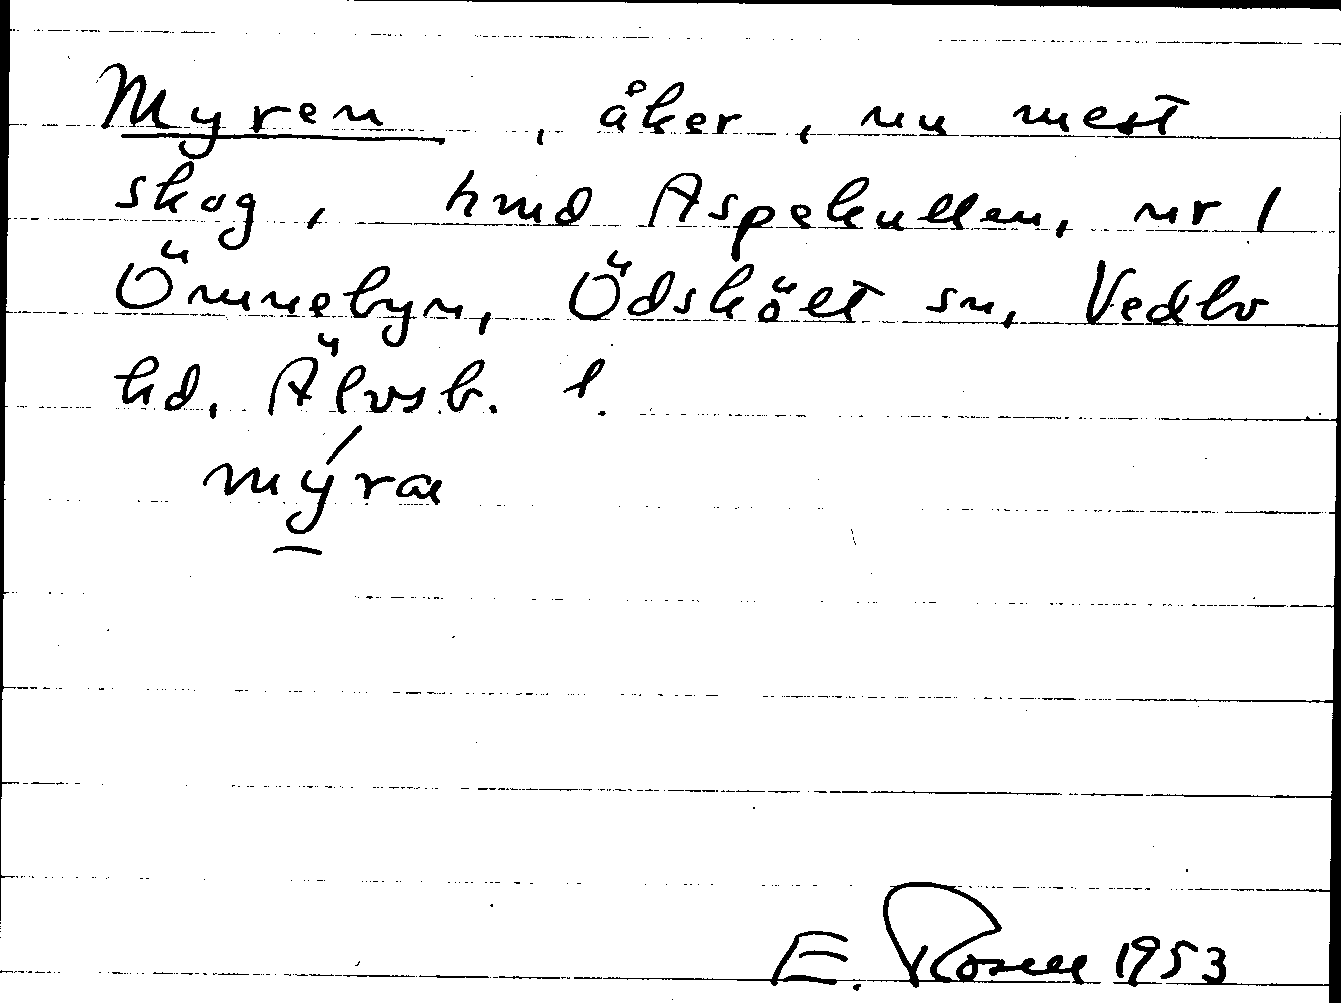 Myren, åker, nu mest
skog, hmd Aspekullen, nr 1
Önnebyn, Ödsköłt sn, Vedbo
hd, Älvsb. l.
mýra
E. Rosell 1953